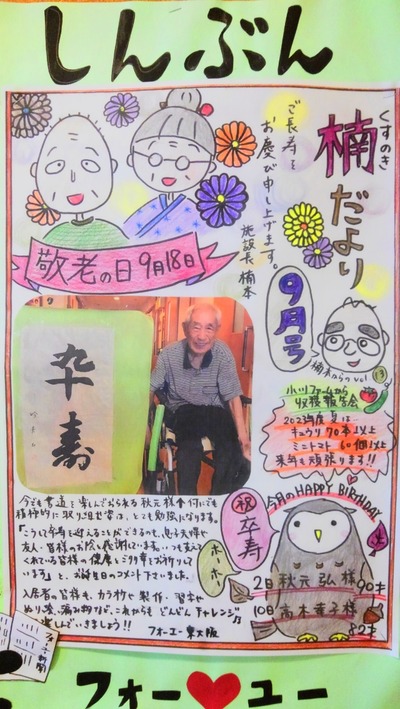 しんぶん
くすのき
楠だより
9月号
ご長寿を
お慶び申し上げます。
施設長 楠本
敬老の日9月18日
卒寿
楠本からの vol 13
小川ファームから
収穫報告会
2023年度夏は
キュウリ 70本以上
ミニトマト 60個以上
来年も頑張ります!!
今でも書道を楽しんでおられる秋元様
精神的に取り組む姿は、とても勉強になります。
友人・皆様のお陰と感謝しています。いつも支えて
くれている皆様の健康とご多幸をお祈りして
います」と、お誕生日のコメント下さいました。
入居者の皆様も、カラオケや製作・習字や
ぬり絵、編み物など、これからもどんどんチャレンジし
楽しんでいきましょう!!
フォーユー東大阪
今月のHAPPY BIRTHDAY
祝 卒寿
ホーホー
2日 秋元 弘 様 90才
10日 高木 葉子 様
82才
フォー♥ユー